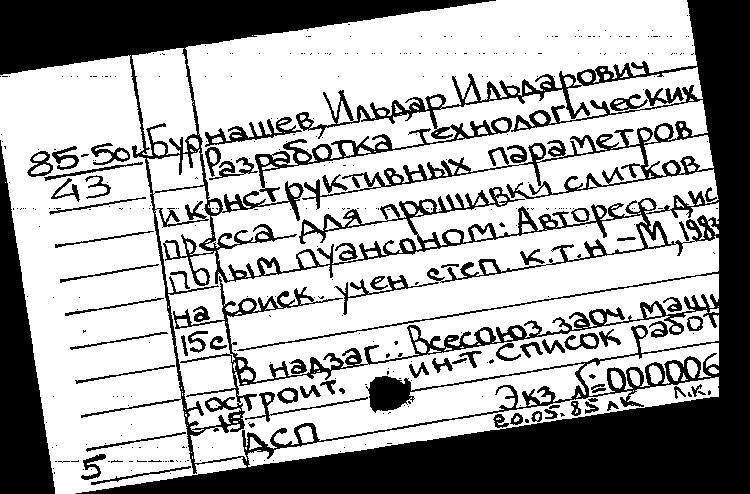 Бурнашев, Ильдар Ильдарович.
85-5ок
43
Разработка технологических
и конструктивных параметров
пресса для прошивки слитков
полым пуансоном: Автореф. дис
на соиск. учен. степ. к.т.н. – М., 1983
15с.
В надзаг.: Всесоюз. заоч. маши
ностроит. ин-т. Список работ
с. 15.
Экз. №=000006
ДСП
20.05.85 ЛК Л.К.
5